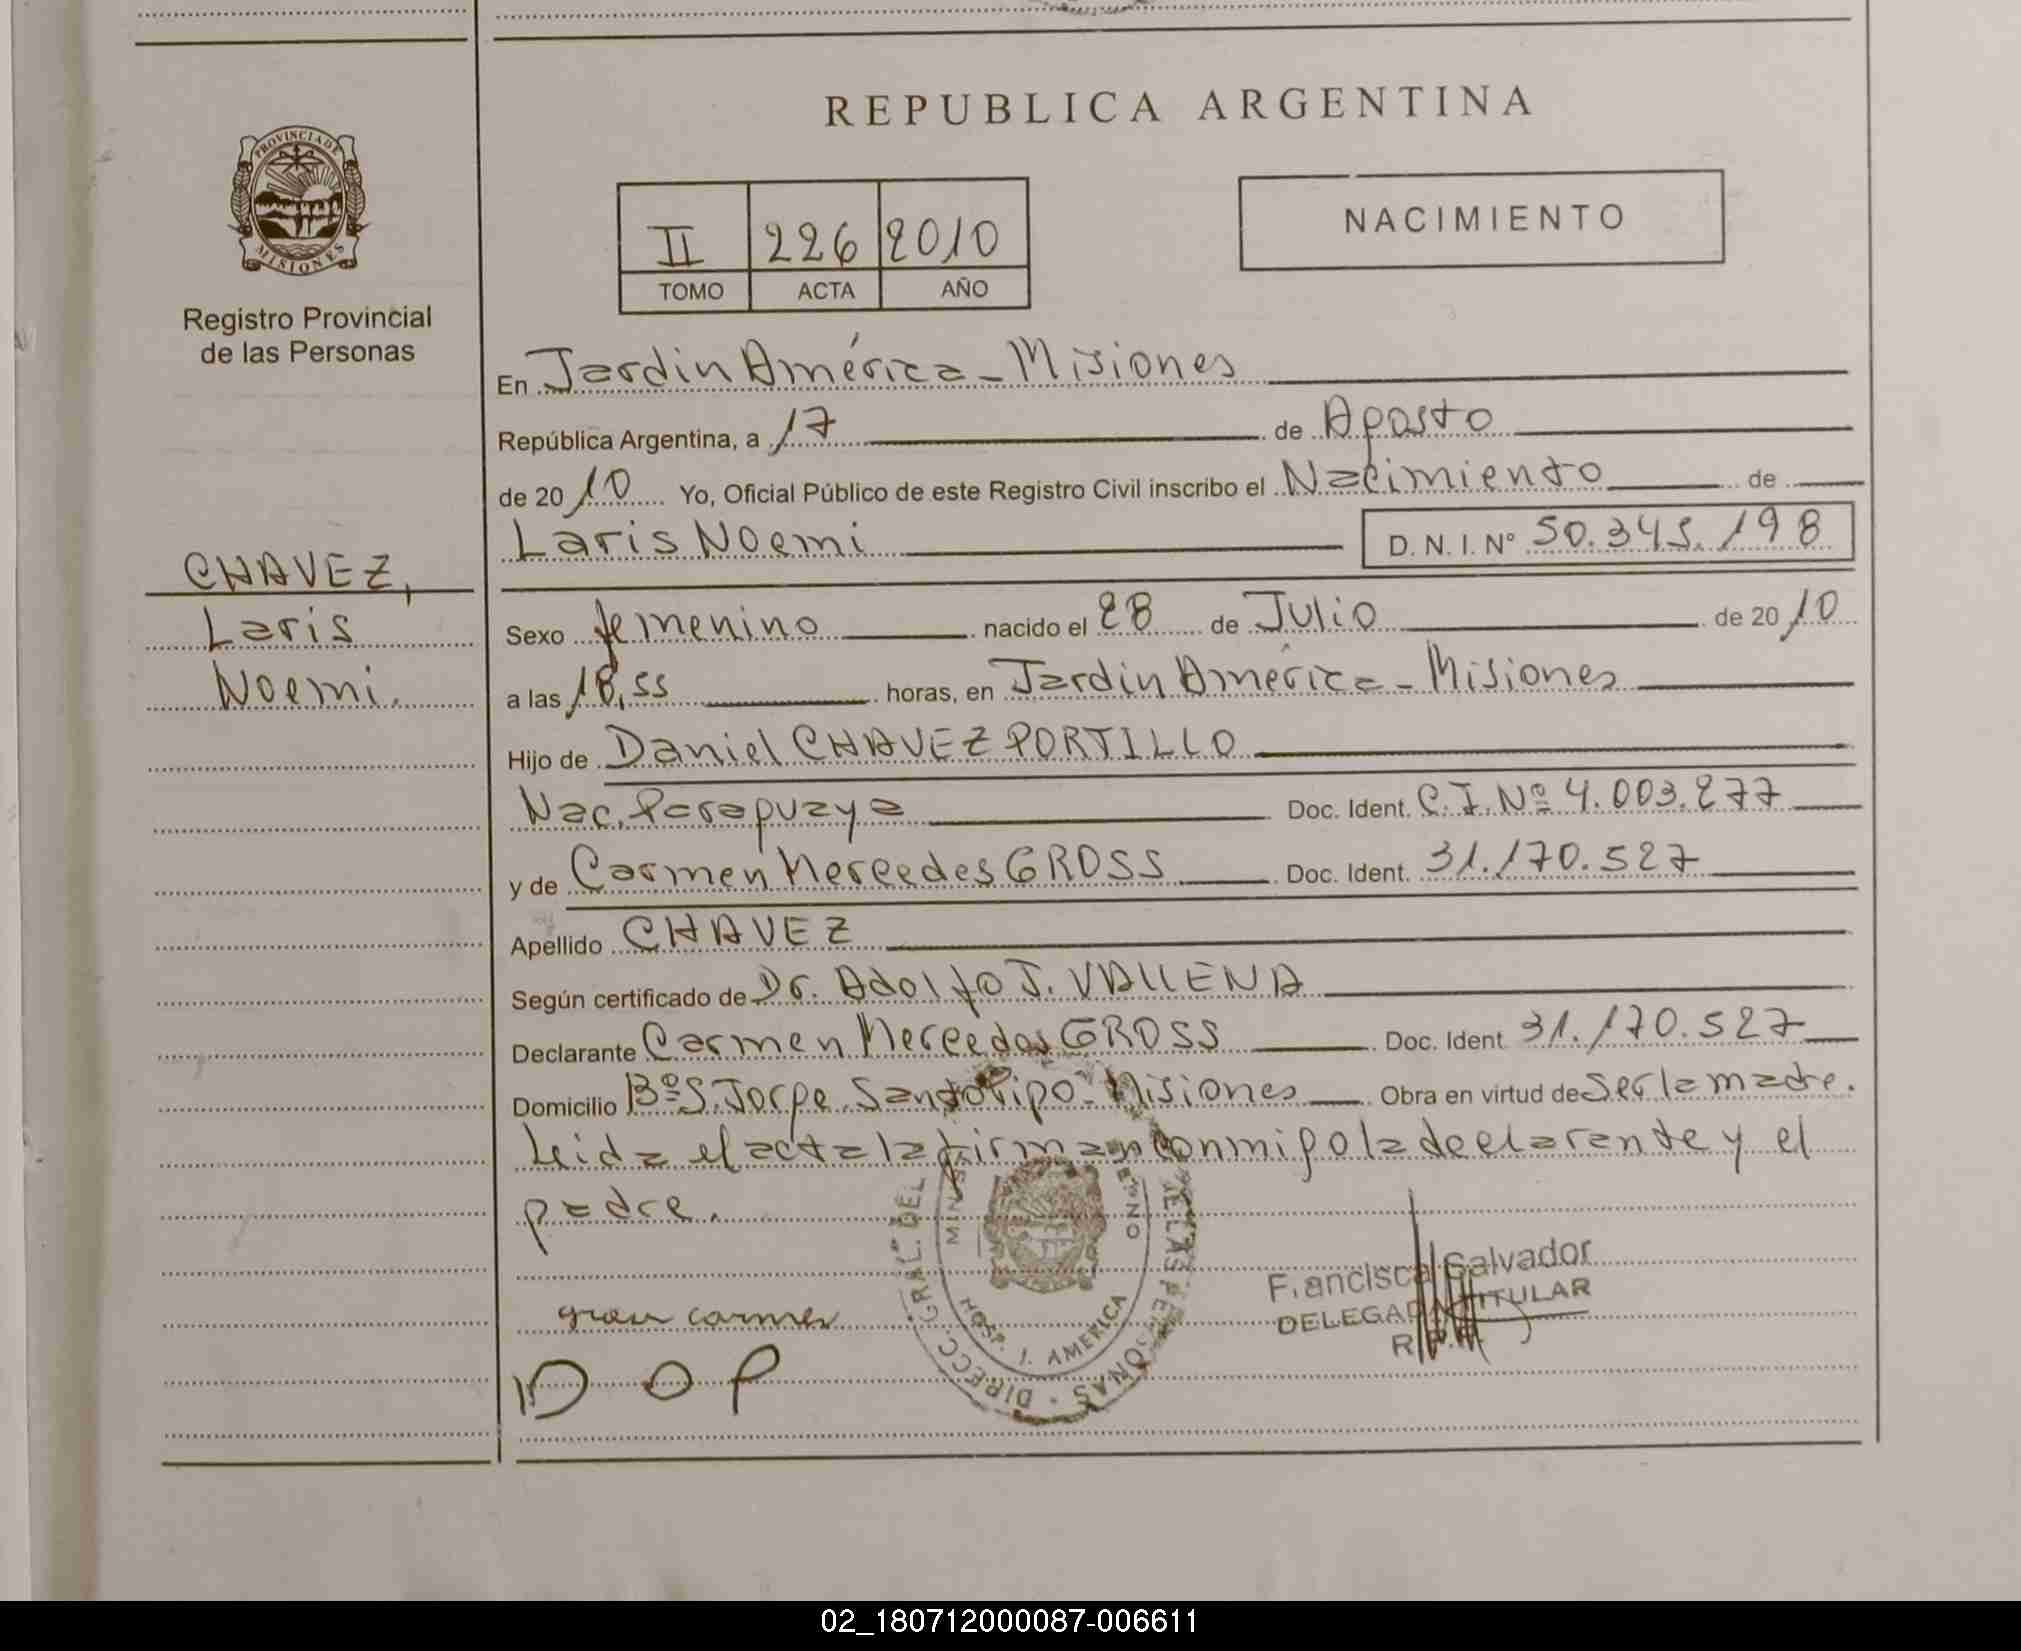 REPUBLICA ARGENTINA
PROVINCIA DE
MISIONES
Registro Provincial
de las Personas
NACIMIENTO
II 226 2010
TOMO ACTA AÑO
En Jardin América - Misiones
República Argentina, a 17 de Agosto
de 2010 Yo, Oficial Público de este Registro Civil inscribo el Nacimiento de
Laris Noemi D.N.I. Nº 50.345.198
CHAVEZ,
Laris
Noemi.
Sexo femenino nacido el 28 de Julio de 2010
a las 18,55 horas, en Jardin América - Misiones
Hijo de Daniel CHAVEZ PORTILLO
Nac. Paraguaya Doc. Ident. C.I. Nº 4.003.277
y de Carmen Mercedes GROSS Doc. Ident. 31.170.527
Apellido CHAVEZ
Según certificado de Dr. Adolfo J. VALLENA
Declarante Carmen Mercedes GROSS Doc. Ident 31.170.527
Domicilio Bº S. Jorge. Santo Pipo - Misiones Obra en virtud de Ser la madre.
Leida el acta la firman conmigo la declarante y el
padre.
DIRECC. GRAL. DEL
DE LAS PERSONAS
HOSP. J. AMERICA
Francisca Salvador
DELEGADA TITULAR
R.P.P.
D O P
02_180712000087-006611